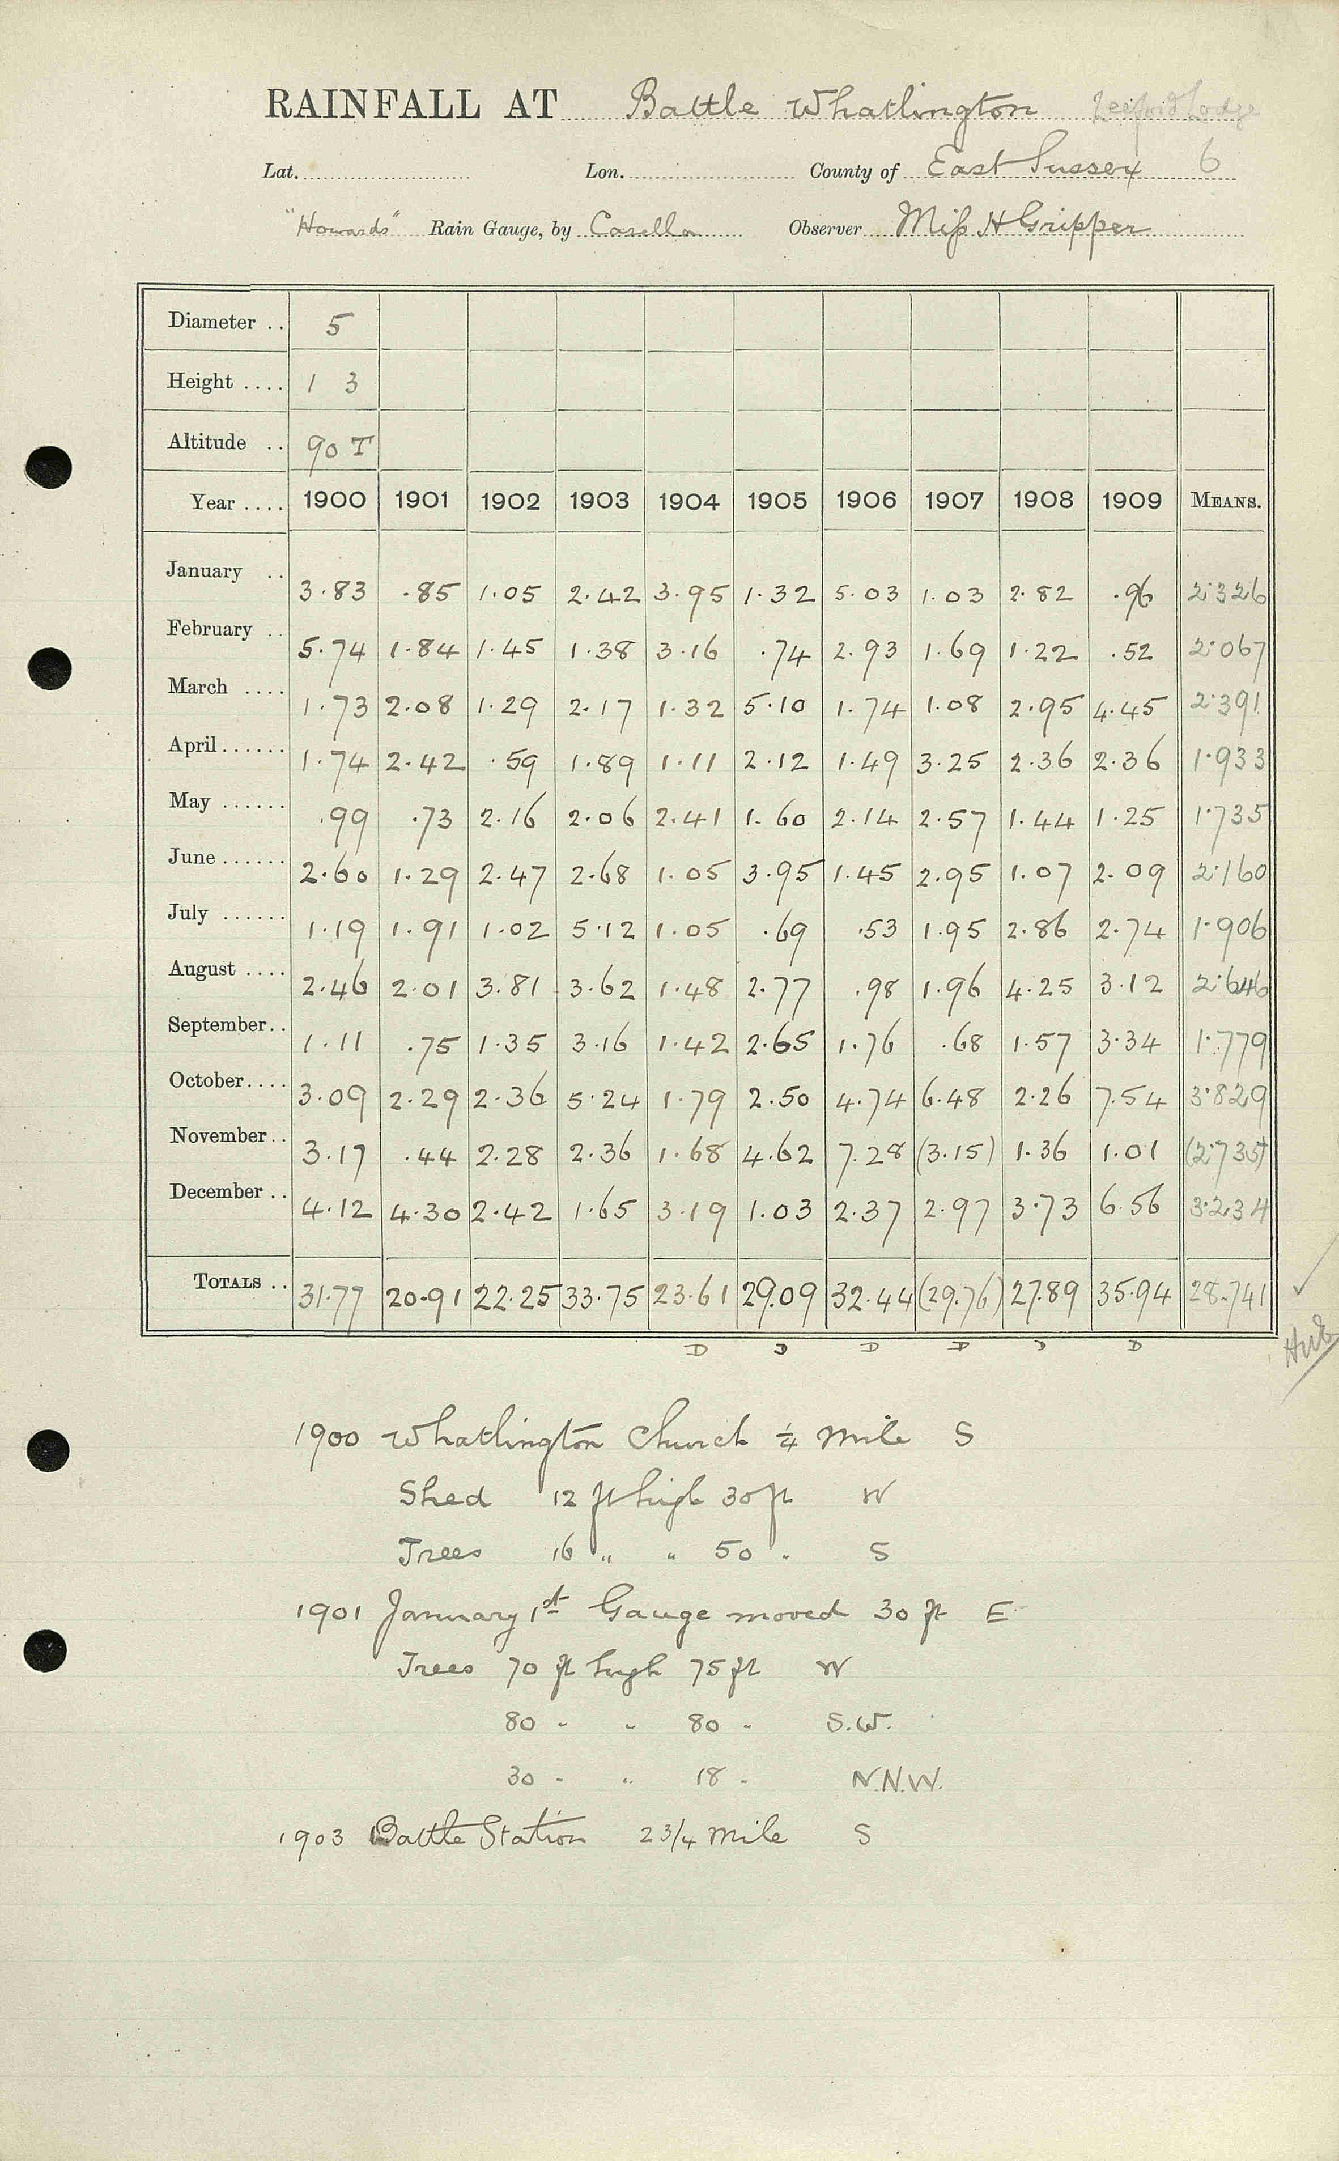 RAINFALL AT Battle Whatlington Leeford Lodge
Lat. Lon. County of East Sussex 6
"Howards" Rain Gauge, by Casella Observer Miss H Gripper
Diameter .. 5
Height .... 1 3
Altitude .. 90 T
Year .... 1900 1901 1902 1903 1904 1905 1906 1907 1908 1909 MEANS.
January .. 3.83 .85 1.05 2.42 3.95 1.32 5.03 1.03 2.82 .96 2.326
February .. 5.74 1.84 1.45 1.38 3.16 .74 2.93 1.69 1.22 .52 2.067
March .... 1.73 2.08 1.29 2.17 1.32 5.10 1.74 1.08 2.95 4.45 2.391
April ...... 1.74 2.42 .59 1.89 1.11 2.12 1.49 3.25 2.36 2.36 1.933
May ...... .99 .73 2.16 2.06 2.41 1.60 2.14 2.57 1.44 1.25 1.735
June ...... 2.60 1.29 2.47 2.68 1.05 3.95 1.45 2.95 1.07 2.09 2.160
July ...... 1.19 1.91 1.02 5.12 1.05 .69 .53 1.95 2.86 2.74 1.906
August .... 2.46 2.01 3.81 3.62 1.48 2.77 .98 1.96 4.25 3.12 2.646
September .. 1.11 .75 1.35 3.16 1.42 2.65 1.76 .68 1.57 3.34 1.779
October .... 3.09 2.29 2.36 5.24 1.79 2.50 4.74 6.48 2.26 7.54 3.829
November .. 3.17 .44 2.28 2.36 1.68 4.62 7.28 (3.15) 1.36 1.01 (2.735)
December .. 4.12 4.30 2.42 1.65 3.19 1.03 2.37 2.97 3.73 6.56 3.234
TOTALS .. 31.77 20.91 22.25 33.75 23.61 29.09 32.44 (29.76) 27.89 35.94 28.741
D D D D D D
1900 Whatlington Church ¼ mile S
Shed 12 ft high 30 ft W
Trees 16 " " 50 " S
1901 January 1st Gauge moved 30 ft E
Trees 70 ft high 75 ft W
80 " " 80 " S.W.
30 " " 18 " N.N.W.
1903 Battle Station 2 3/4 mile S